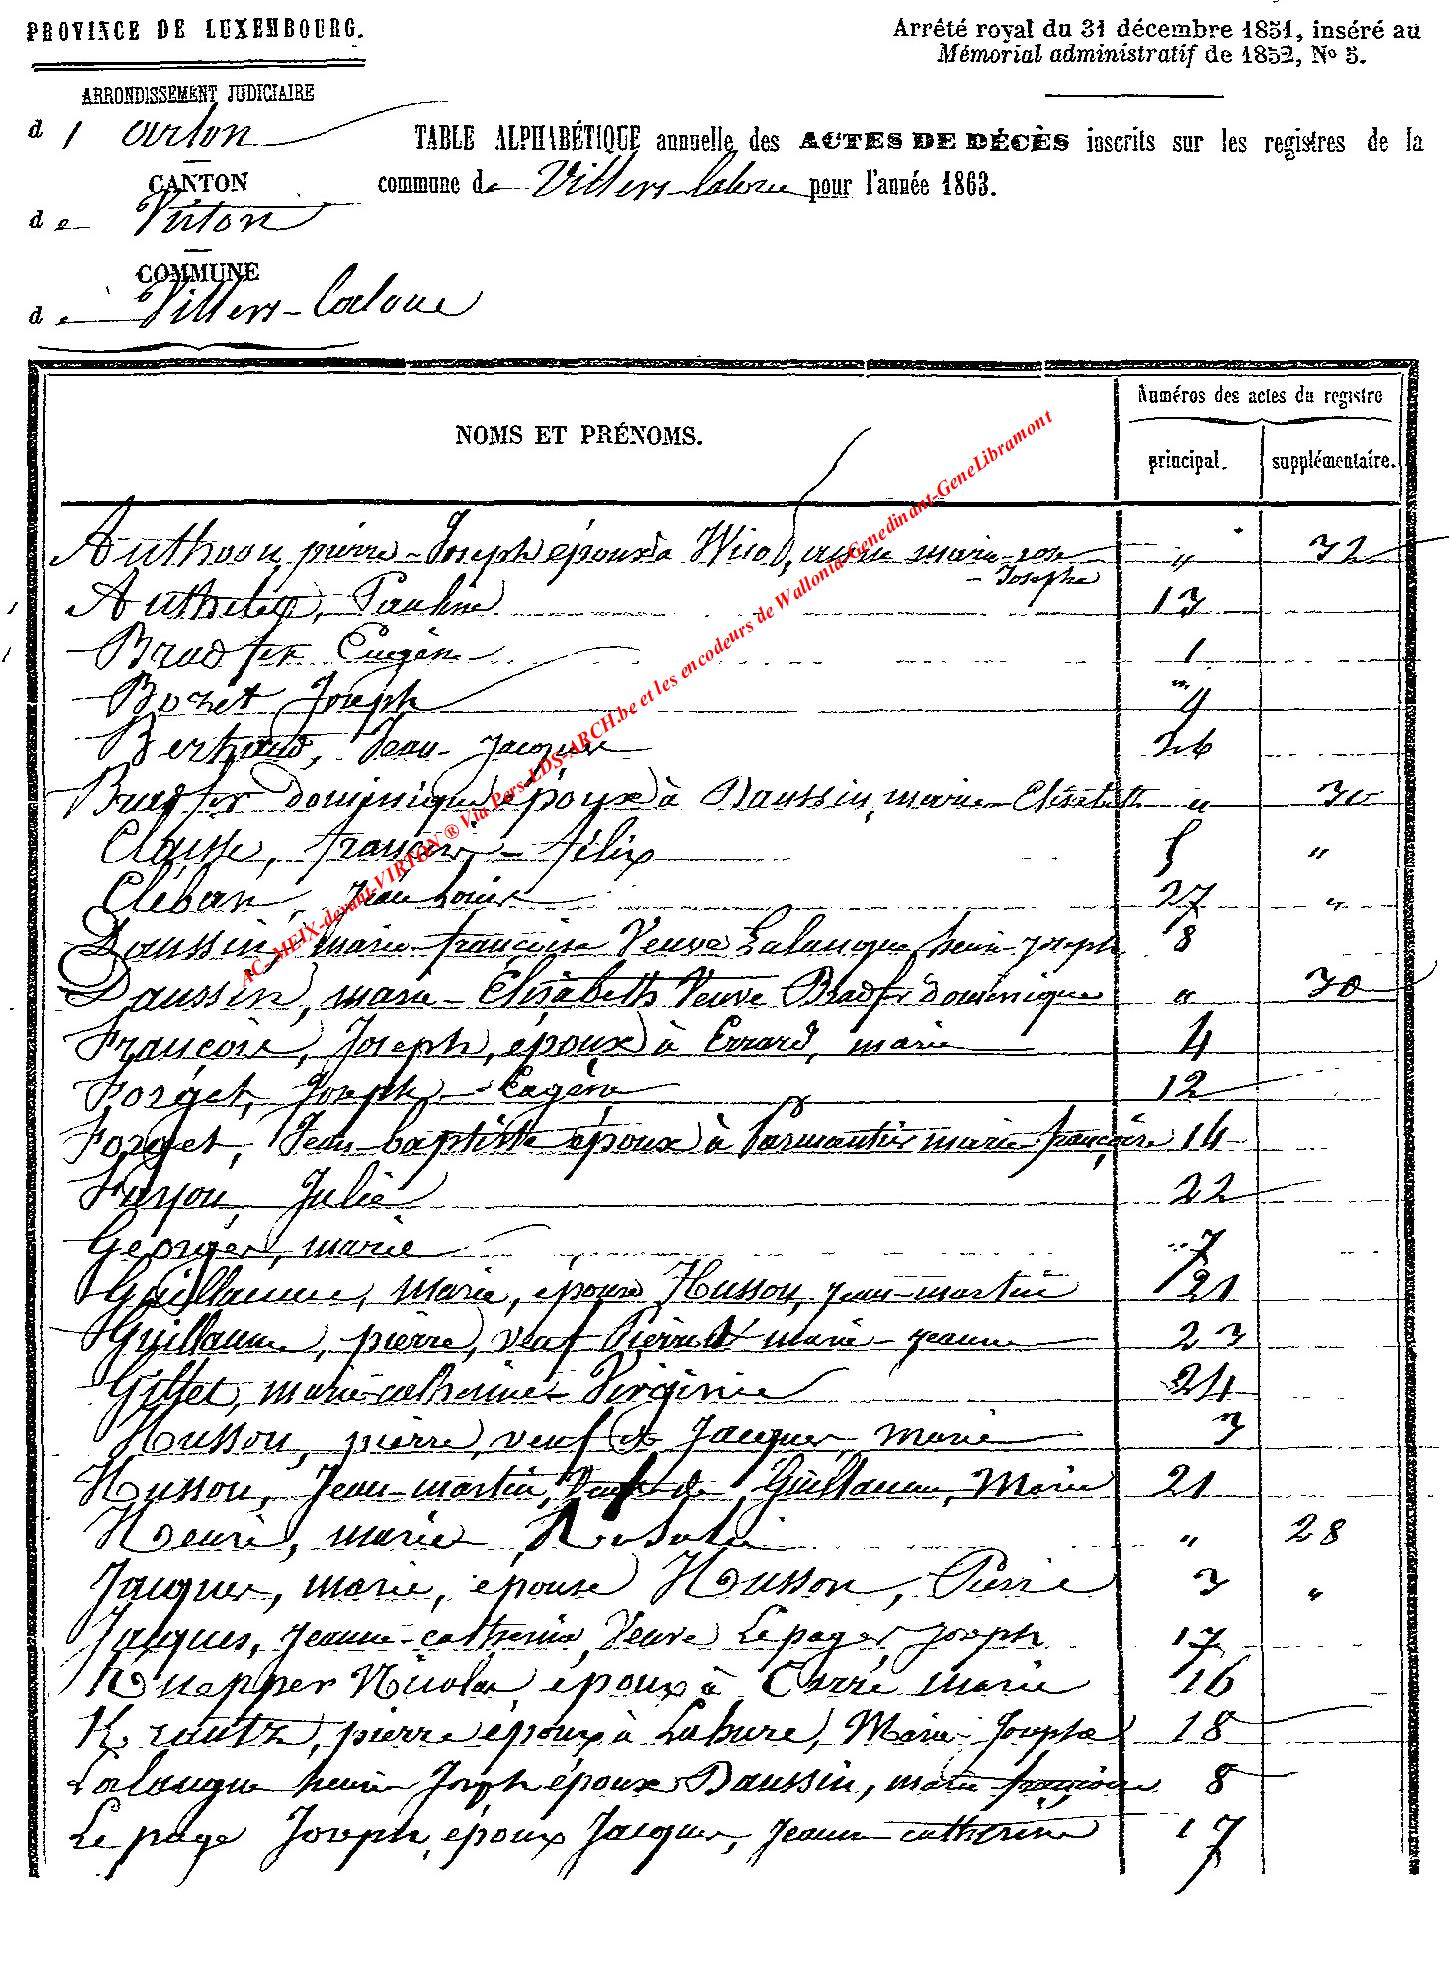 PROVINCE DE LUXEMBOURG.
Arrêté royal du 31 décembre 1851, inséré au
Mémorial administratif de 1852, No 5.
ARRONDISSEMENT JUDICIAIRE
d'arlon
TABLE ALPHABÉTIQUE annuelle des ACTES DE DÉCÈS inscrits sur les registres de la
commune de Villers-laloue pour l'année 1863.
CANTON
de Virton
COMMUNE
de Villers-laloue
NOMS ET PRÉNOMS.
Numéros des actes du registre
principal.
supplémentaire.
AC-MEIX-devant-VIRTON ® Via Pers-LDS-ARCH.be et les encodeurs de Wallonia-Genedinant-GeneLibramont
pierre-Joseph époux à marie-rose " 32
-Josephe
Pauline 13
Bradfer Eugène 1
Bozet Joseph 9
Berhaud, Jean-Jacques 26
Bradfer dominique époux à Daussin, marie-Elisabeth " 30
Clausse, françois-félix 5 "
Cleban, Jean Louis 27 "
Daussin, marie-françoise Veuve Lalangue henri-joseph 8
Daussin, marie-Elisabeth Veuve Bradfer dominique " 30
François, Joseph, époux à Errard, marie 4
Forget, Joseph-Eugène 12
Forget, Jean-baptiste époux à Parmantier marie françoise 14
Julie 22
Georges, marie 7
Guillaume, marie, épouse Husson, jean-martin 21
Guillaume, pierre, veuf Pierret marie-jeanne 23
Gillet, marie-catherine-Virginie 24
Husson, pierre, veuf de Jacques, marie 3
Husson, Jean-martin, Veuf de Guillaume, Marie 21
Henri, marie Rosalie " 28
Jacques, marie, épouse Husson, Pierre 3 "
Jacques, jeanne-catherine, Veuve Lepage, joseph 17
Knepper Nicolas époux à Carré marie 16
Krantz, pierre époux à Lahure, Marie-Josephe 18
Lalangue henri-Joseph époux Daussin, marie françoise 8
Lepage Joseph, époux Jacques, Jeanne catherine 17